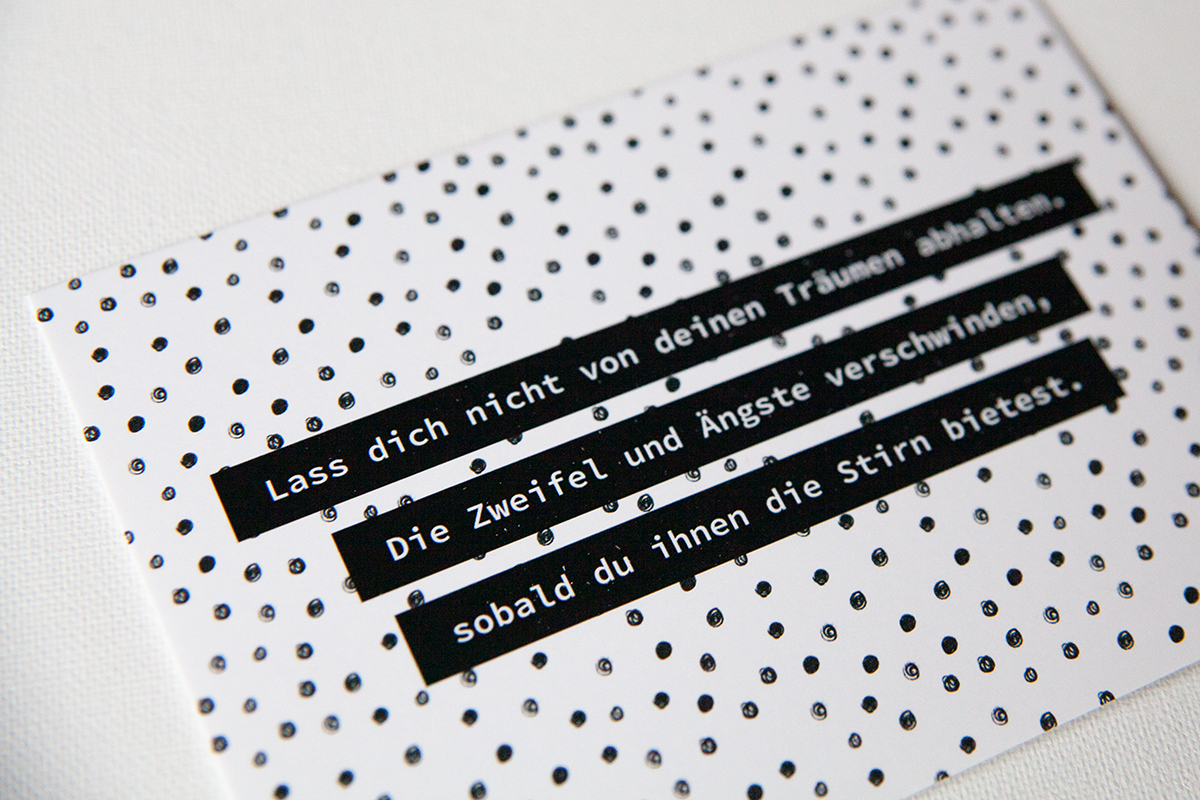 Lass dich nicht von deinen Träumen abhalten.
Die Zweifel und Ängste verschwinden,
sobald du ihnen die Stirn bietest.